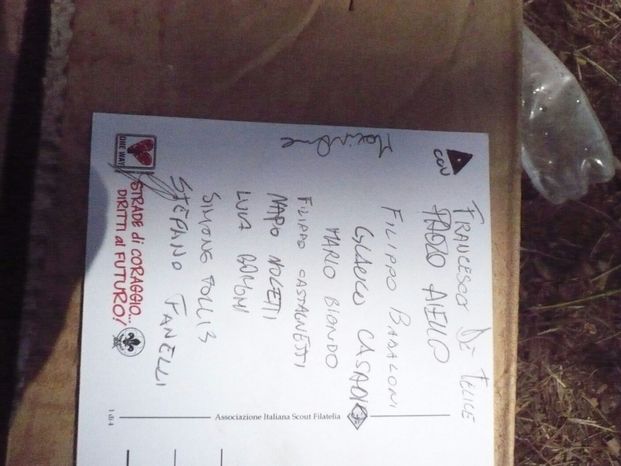 COV
FRANCESCO DE FELICE
PAOLO AIELLO
FILIPPO BABALONI
GLAUCO CASADIO
MARIO BIONDO
FILIPPO CASTAGNETTI
NAPO NOCETTI
LUCA BOLONI
SIMONE TOLLIS
STEFANO FANELLI
ONE WAY
STRADE di CORAGGIO...
DIRITTI al FUTURO!
Associazione Italiana Scout Filatelia
1 di 4